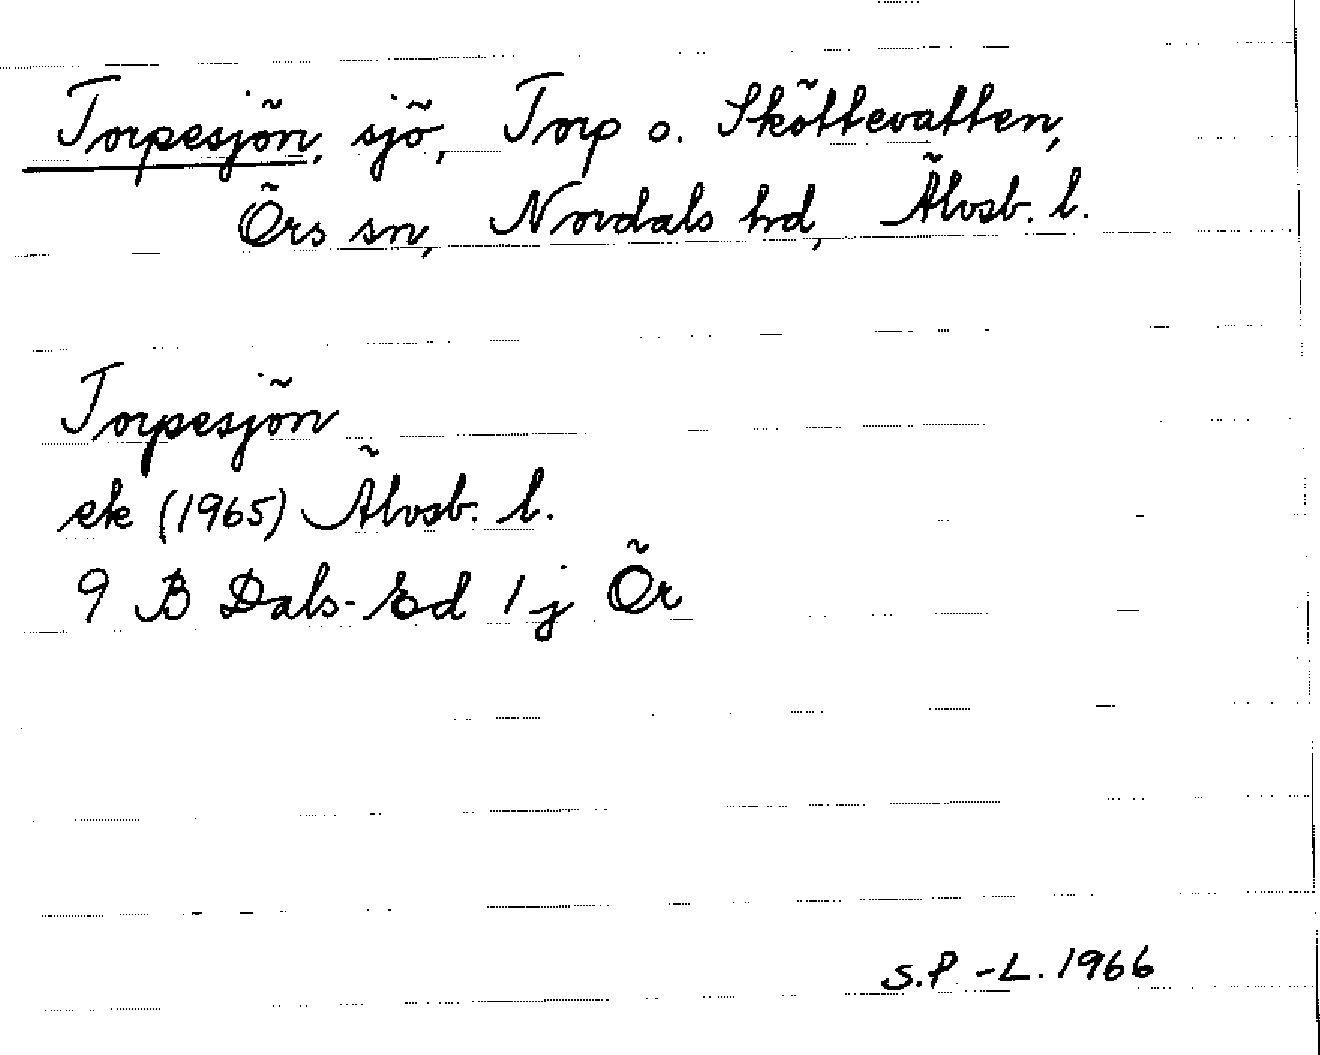 Torpesjön, sjö, Torp o. Sköttevatten,
Örs sn, Nordals hd, Älvsb. l.
Torpesjön
ek (1965) Älvsb. l.
9 B Dals-Ed 1 j Ör
S.P-L. 1966